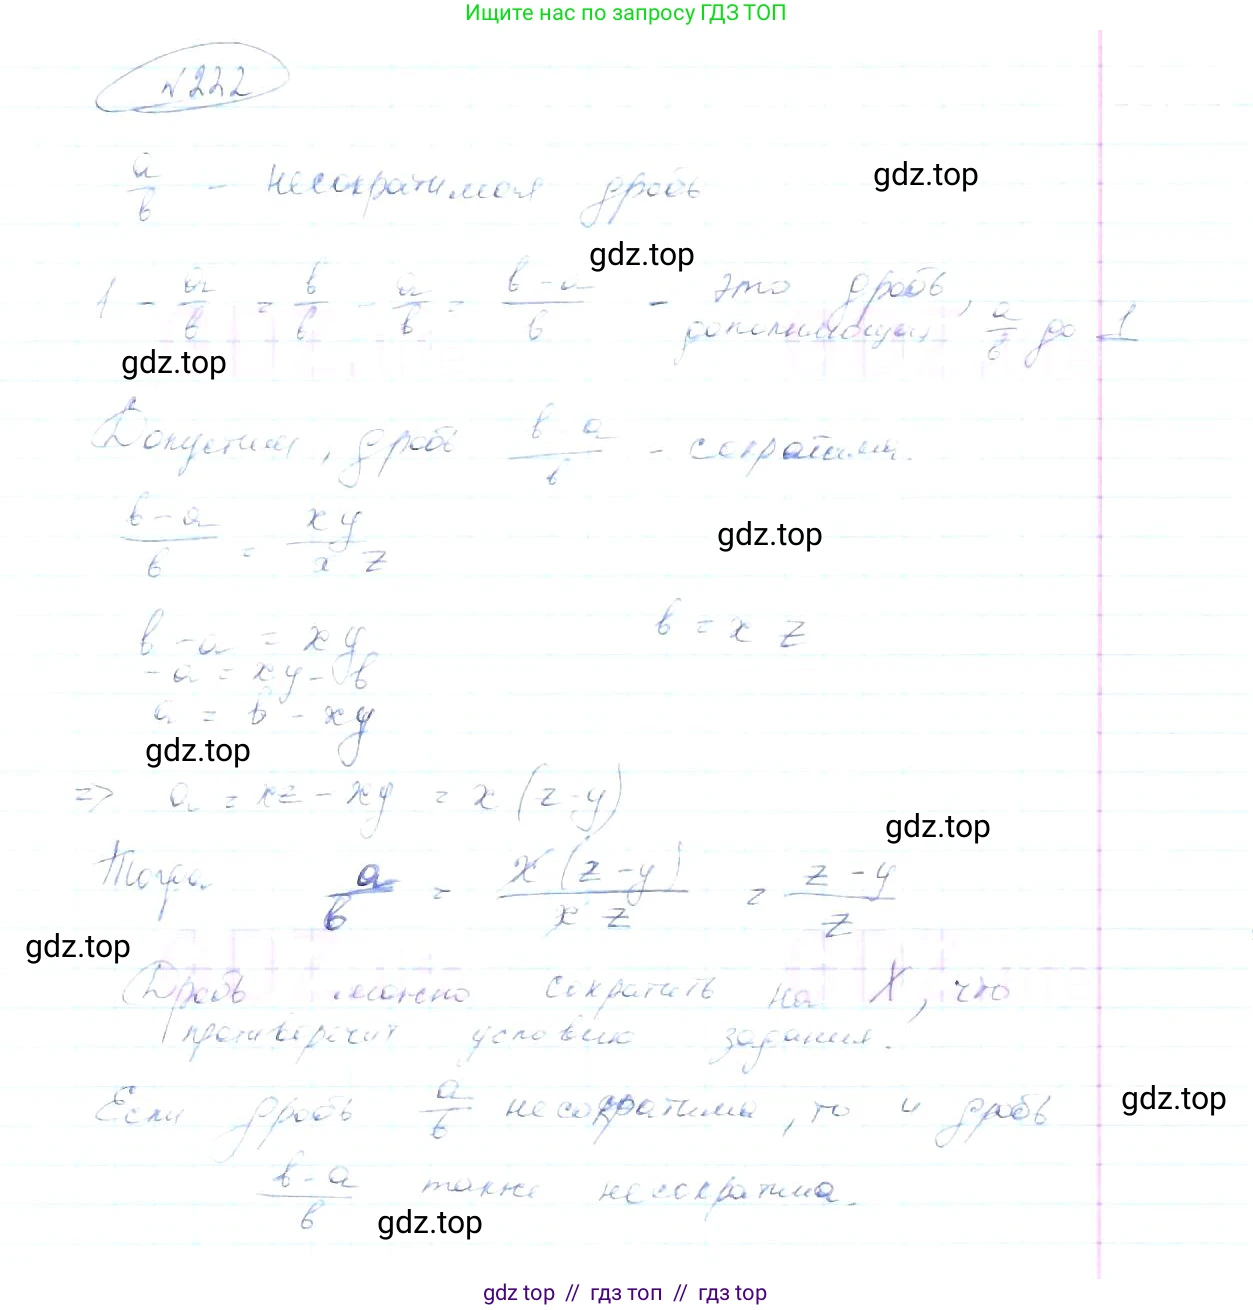 Ищите нас по запросу ГДЗ ТОП
№222
a/b - несократимая дробь
gdz.top
gdz.top
1 - a/b = b/b - a/b = (b-a)/b - это дробь,
дополняющая a/b до 1
gdz.top
Допустим, дробь (b-a)/b - сократима.
(b-a)/b = xy/xz
gdz.top
b-a = xy b = xz
-a = xy-b
a = b-xy
gdz.top
=> a = xz - xy = x(z-y)
gdz.top
Тогда a/b = x(z-y)/xz = (z-y)/z
gdz.top
Дробь можно сократить на X, что
противоречит условию задания.
Если дробь a/b несократима, то и дробь
gdz.top
(b-a)/b также несократима.
gdz.top
gdz top // гдз топ // гдз top